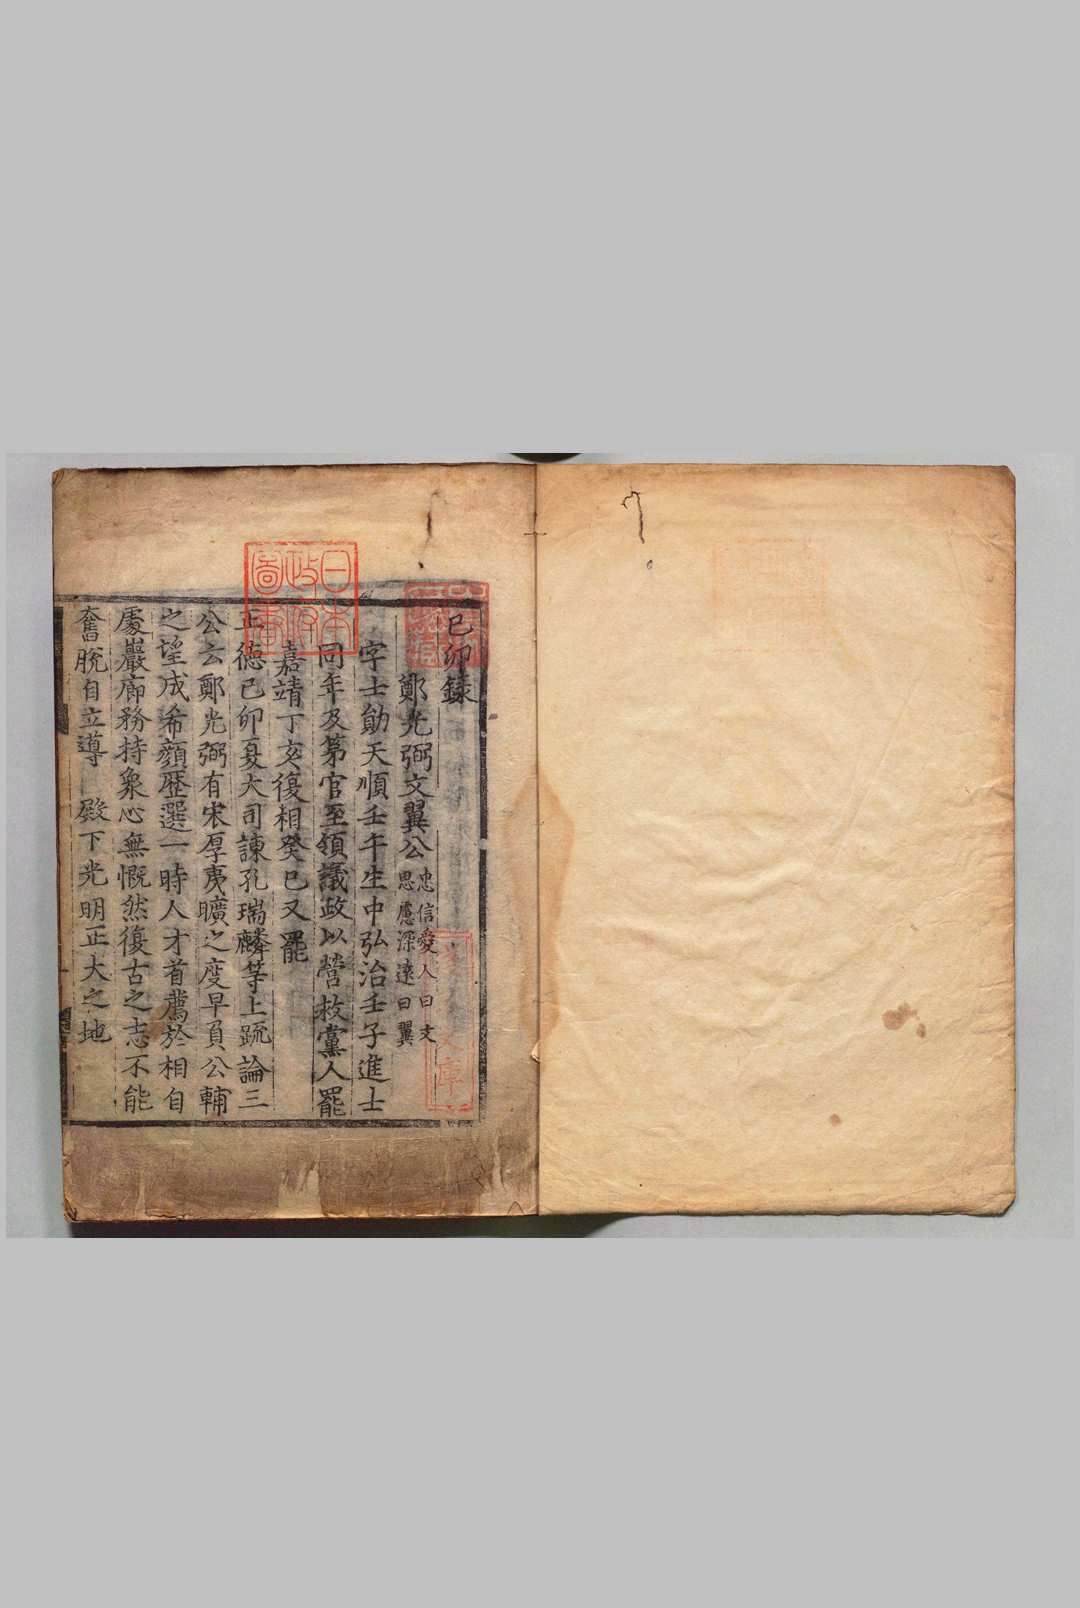 己卯錄
鄭光弼文翼公 忠信愛人曰文 思慮深遠曰翼
字士勛天順壬午生中弘治壬子進士
同年及第官至領議政以營救黨人罷
嘉靖丁亥復相癸巳又罷
正德己卯夏大司諫孔瑞麟等上疏論三
公云鄭光弼有宋厚夷曠之度早負公輔
之望成希顔歷選一時人才首薦於相自
處巖廊務持衆心無慨然復古之志不能
奮脫自立導 殿下光明正大之地
日本
政府
圖書
文庫